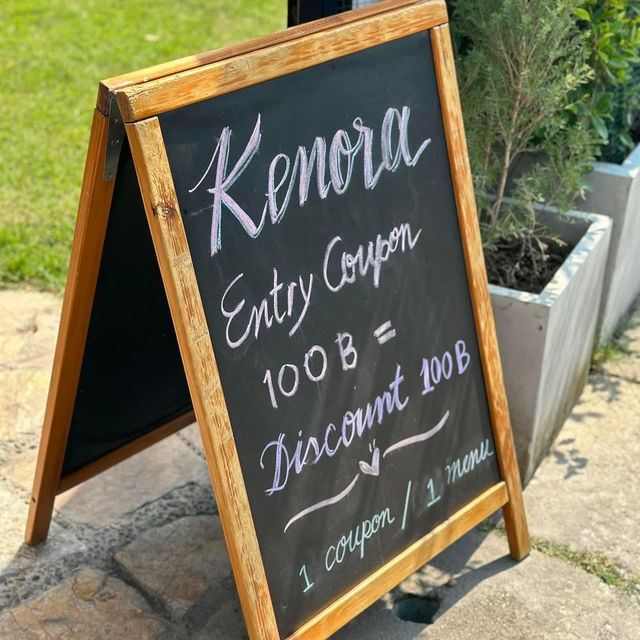 Kenora
Entry Coupon
100 B =
Discount 100 B
1 coupon / 1 menu